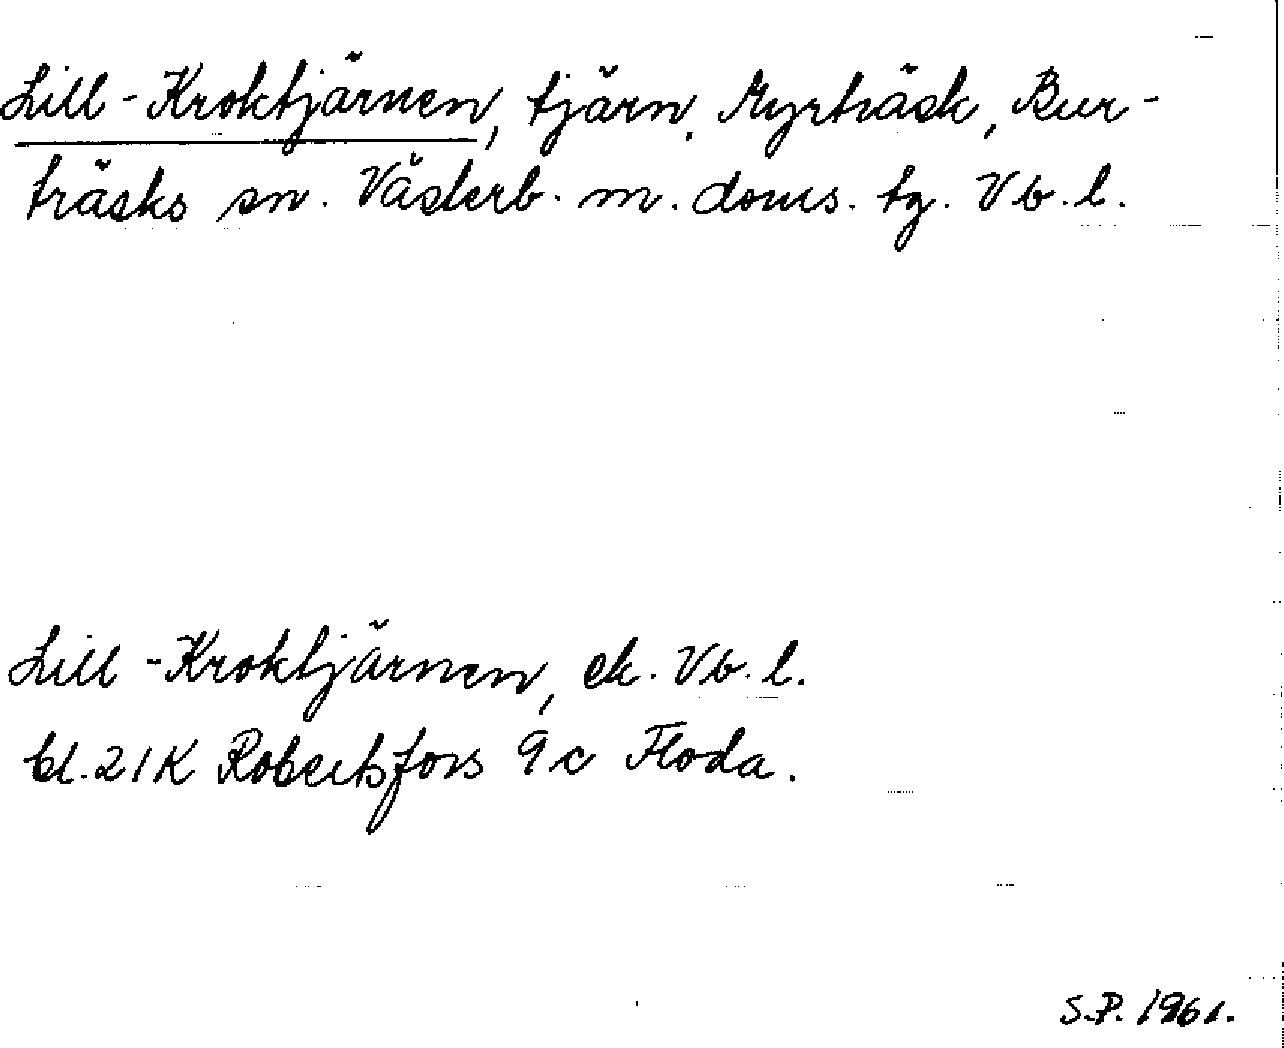 Lill-Kroktjärnen, tjärn. Myrträsk, Bur-
träsks sn. Västerb. m. doms. tg. Vb. l.
Lill-Kroktjärnen, ek. Vb. l.
bl. 21K Robertsfors 9c Floda.
S.P. 1961.